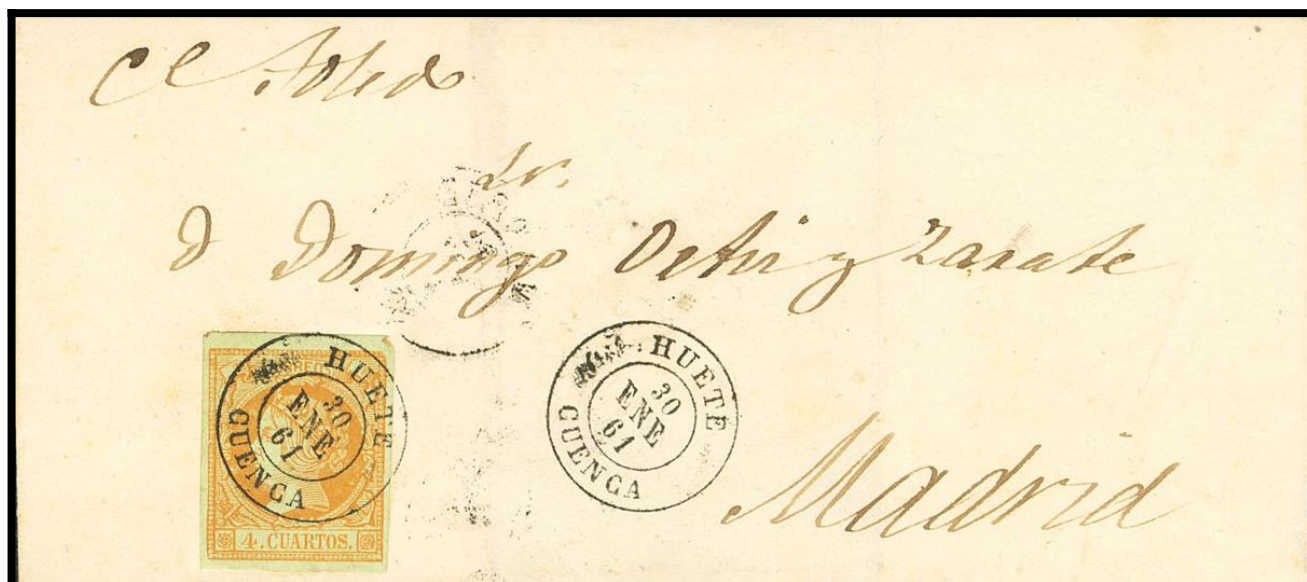 Cl Toledo
Sr.
D Domingo Ortiz y Zarate
HUETE
30
ENE
61
CUENCA
4. CUARTOS.
HUETE
30
ENE
61
CUENCA
Madrid